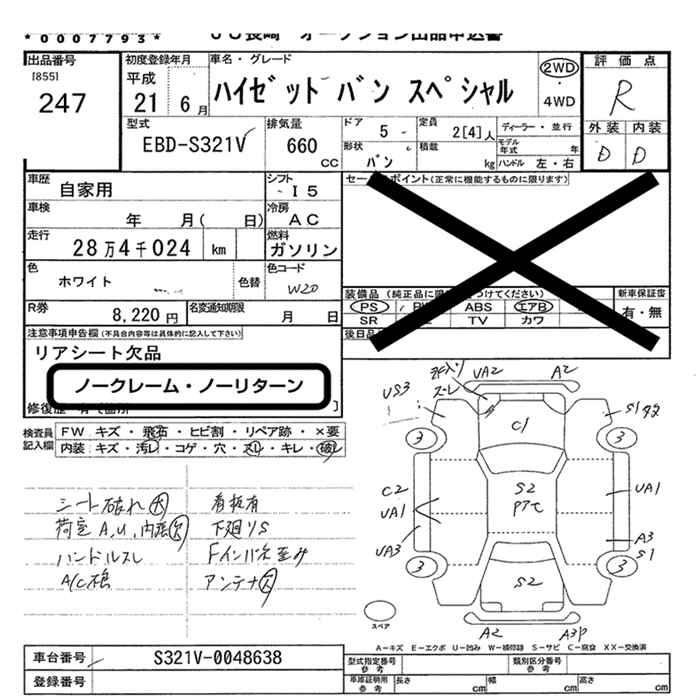 *0007793*
出品番号
[855]
247
初度登録年月
平成
21 6月
車名・グレード
ハイゼット バン スペシャル
2WD
・
4WD
評価点
R
型式
EBD-S321V
排気量
660
cc
ドア
5
定員
2[4]人
ディーラー・並行
形状
バン
積載
kg
モデル年式 年
ハンドル 左・右
外装 内装
D D
車歴
自家用
シフト
I5
車検
年 月( 日)
冷房
AC
走行
28万4千024 km
燃料
ガソリン
色
ホワイト
色替
色コード
W20
R券
8,220円
名変通知期限
月 日
イント(正常に機能するものに限ります)
装備品
PS
ABS
エアB
SR
TV
カワ
新車保証書
有・無
注意事項申告欄(不具合内容等は具体的に記入して下さい)
リアシート欠品
ノークレーム・ノーリターン
検査員記入欄
FW キズ・飛石・ヒビ割・リペア跡・×要
内装 キズ・汚レ・コゲ・穴・スレ・キレ・破レ
シート破れ大 看板有
荷室A,U,内張欠 下廻りS
ハンドルスレ
アンテナ欠
US3
UA2
A2
C1
S1
3
3
C2
UA1
UA1
S2
UA3
A3
S1
3
3
S2
A2
スペア
A-キズ E-エクボ U-凹み W-補修跡 S-サビ C-腐食 XX-交換済
車台番号
S321V-0048638
登録番号
型式指定番号
参考
類別区分番号
参考
車庫証明用
参考
長さ cm
幅 cm
高さ cm